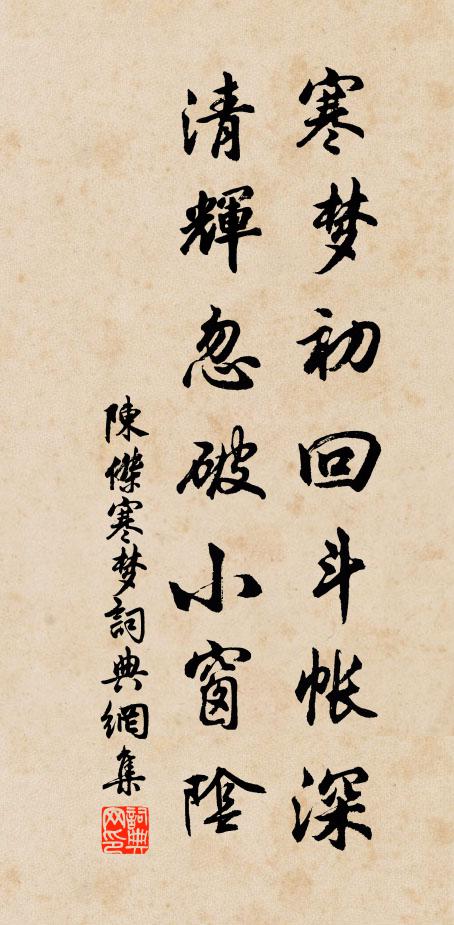 寒梦初回斗帐深
清輝忽破小窗陰
陳傑寒梦詞典網集
詞典网印